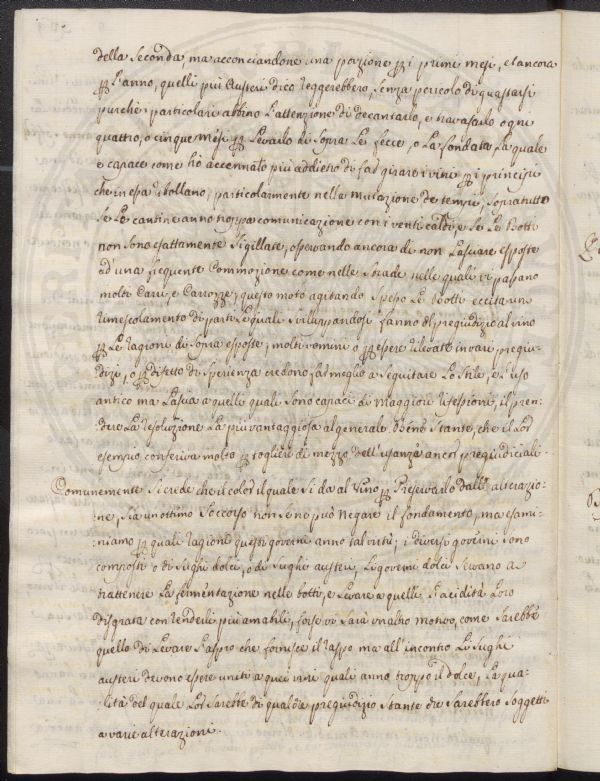 della Seconda, ma acconciandone una porzione p i primi mesi, e l'ancora
p l'anno, quelli più Austeri dico reggerebbero, Senza pericolo di guastarsi
purchè i particolari abbino l'attenzione di decantarlo, e travasarlo ogni
quattro, o cinque mesi p Levarlo di Sopra Le fecce, o La fondata La quale
e capace come hò accennato più addietro di far girare i vini p i principj
che in essa ribollano, particolarmente nella mutazione de tempi, Sopratutto
Se Le cantine anno troppa comunicazione con i venti caldi, e Se Le Botti
non Sono esattamente Sigillate, osservando ancora di non Lasciare esposte
ad una frequente Commozione come nelle Strade nelle quali vi passano
molti Carri, e Carrozze, questo moto agitando Spesso Le Botti eccita un
rimescolamento di parti Le quali Sviluppandosi fanno del pregiudizio al vino
p Le ragioni di Sopra esposte, molti uomini o p essere allevati in varj pregiu-
dizj, o p difetto di Sperienza credono far meglio a Seguitare Lo Stile, e l'uso
antico ma Lascia a quelli quali Sono capaci di Maggiori riflessioni, il pren-
dere La resoluzione La più vantaggiosa al generale Bene Stante, che il Loro
esempio conferirà molto p togliere di mezzo dell'usanze ancor pregiudiciali.
Comunemente Si crede che il color il quale Si dà al Vino p Preservarlo dall' alterazio-
:ne, Sia un ottimo Soccorso non Se ne può negare il fondamento, ma esami-
:niamo p quali ragione questi governi anno tal virtù; i diversi governi Sono
composti o di Sughi dolci, o di Sughi austeri, Li governi dolci Servano a
trattenere La fermentazione nelle botti, e Levare a quelli L'acidità Loro
disgrata con renderli più amabili, forse vi Sarà un altro motivo, come Sarebbe
quello di Levare l'aspro che fornisce il raspo ma all'incontro Li Sughi
austeri devono essere uniti a quei vini quali anno troppo il dolce, La qua-
:lità del quale Lor Sarebbe di qualche pregiudizio Stante che Sarebbero Soggetti
a varie alterazioni.